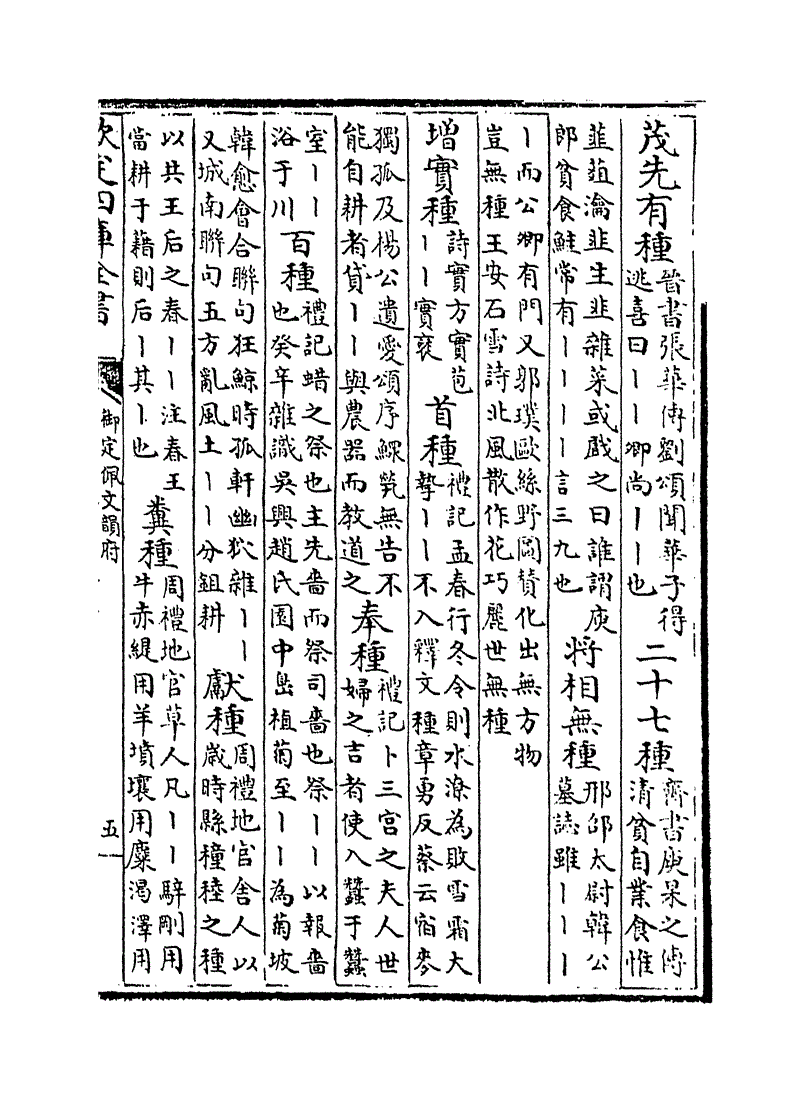 茂先有種晉書張華傳劉頌聞華子得
逃喜曰丨丨卿尚丨丨也二十七種齊書庾杲之傳
清貧自業食惟
韭葅瀹韭生韭雜菜或戲之曰誰謂庾
郎貧食鮭常有丨丨丨丨言三九也將相無種邢邵太尉韓公
墓誌雖丨丨丨
丨而公卿有門又郭璞歐絲野圖贊化出無方物
豈無種王安石雪詩北風散作花巧麗世無種
增實種詩實方實苞
丨丨實褎首種禮記孟春行冬令則水潦為敗雪霜大
摯丨丨不入釋文種章勇反蔡云宿麥
獨孤及楊公遺愛頌序鰥㷀無告不
能自耕者貸丨丨與農器而教道之奉種禮記卜三宮之夫人世
婦之吉者使入蠶于蠶
室丨丨
浴于川百種禮記蜡之祭也主先嗇而祭司嗇也祭丨丨以報嗇
也癸辛雜識吳興趙氏園中㟁植菊至丨丨為菊坡
韓愈會合聯句狂鯨時孤軒幽狖雜丨丨
又城南聯句五方亂風土丨丨分鉏耕獻種周禮地官舍人以
歲時縣穜稑之種
以共王后之春丨丨注春王
當耕于藉則后丨其丨也糞種周禮地官草人凡丨丨騂剛用
牛赤緹用羊墳壤用麋渴澤用
欽定四庫全書
御定佩文韻府
五